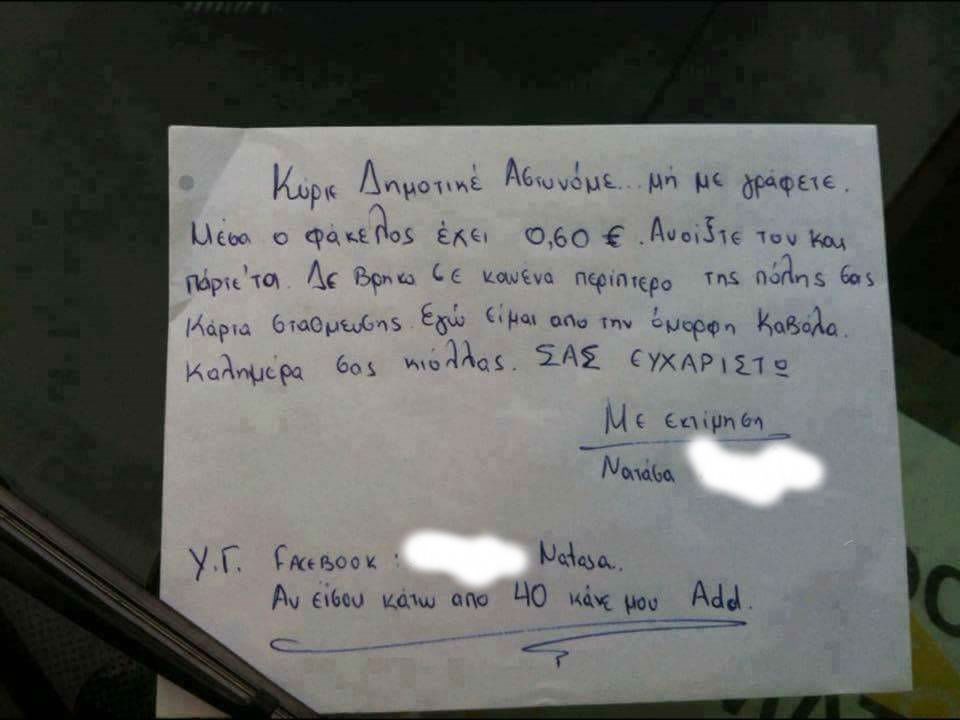 Κύριε Δημοτικέ Αστυνόμε... μή με γράφετε.
Μέσα ο φάκελος έχει 0,60 €. Ανοίξτε τον και
πάρτε'τα. Δε βρηκα σε κανένα περίπτερο της πόλης σας
κάρτα σταθμευσης. Εγώ είμαι απο την όμορφη Καβάλα.
Καλημέρα σας κιόλλας. ΣΑΣ ΕΥΧΑΡΙΣΤΩ
Με εκτίμηση
Νατάσα
Υ.Γ. FACEBOOK : Natasa.
Αν είσου κάτω απο 40 κάνε μου Add.